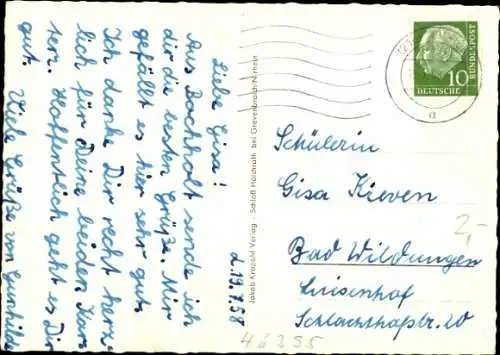 Liebe Gisa!
Aus Bochholt sende ich
dir die besten Grüße. Mir
gefällt es hier sehr gut.
Ich danke Dir recht herz-
lich für Deine beiden Kar-
ten. Hoffentlich geht es Dir
gut. Viele Grüße von Gunhilde
d. 19.7.58
Jakob Krapohl Verlag - Schloß Hülchrath bei Grevenbroich/Nrhein
DEUTSCHE
BUNDESPOST
10
a
Schülerin
Gisa Kieven
Bad Wildungen
Luisenhof
Schlachthofstr. 20
2,-
46355